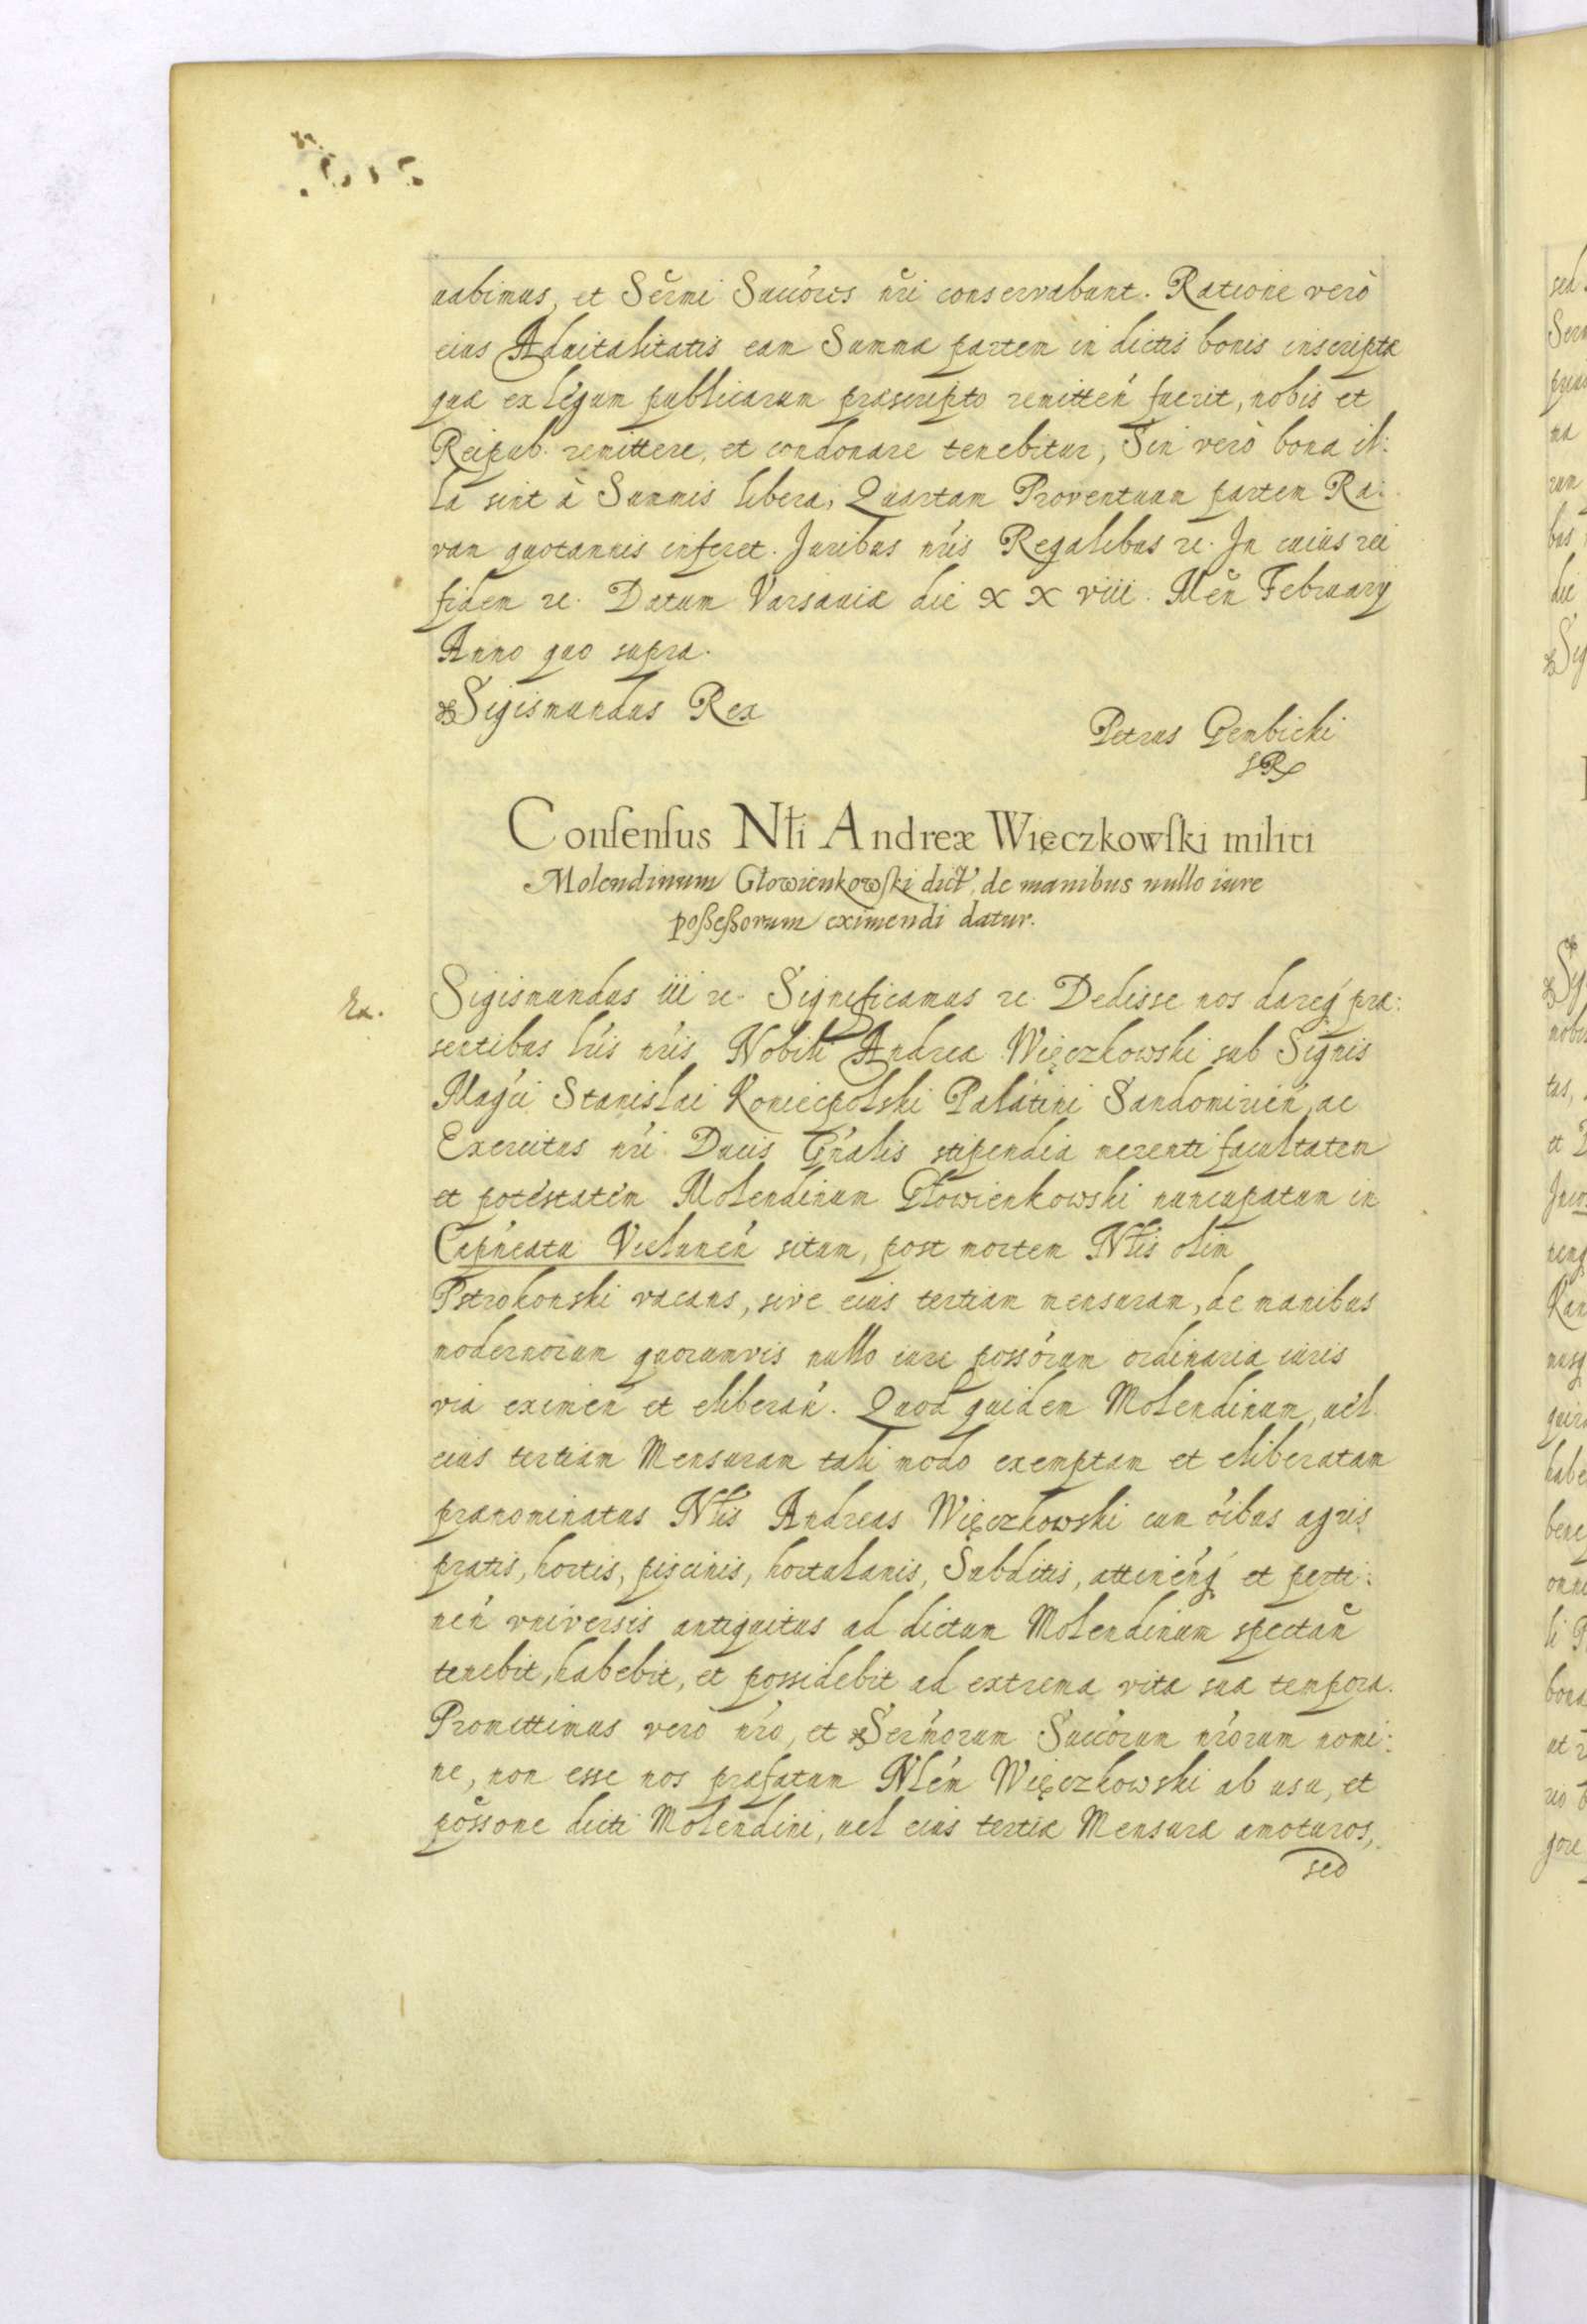 uabimus, et Sermi Succóres nři conservabunt. Ratione verò
eius Aduitalitatis eam Summæ partem in dictis bonis inscriptæ
quæ ex legum publicarum præscripto remitteń fuerit, nobis et
Reipub. remittere, et condonare tenebitur, Sin verò bona il:
la sint à Summis libera, Quartam Proventuum partem Ra:
vam quotannis inferet. Juribus nřis Regalibus &c. In cuius rei
fidem &c. Datum Varsauiæ die XXviii. Meň February
Anno quo supra.
Sigismundus Rex
Petrus Gembicki
SR
Consensus Nłi Andreæ Więczkowski militi
Molendinum Głowienkowski dict, de manibus nullo iure
possessorum eximendi datur.
Ex.
Sigismundus iii &c. Significamus &c. Dedisse nos dareq præ:
sentibus lŕis nŕis Nobili Andreæ Więczkowski sub Signis
Magći Stanislai Koniecpolski Palatini Sandomirień, ac
Exercitus nŕi Ducis Gńralis stipendia merenti facultatem
et potestatem Molendinum Głowienkowski nuncupatum in
Capńeatu Vieluneń situm, post mortem Nłis olim
Pstrokonski vacans, sive eius tertiam mensuram, de manibus
modernorum quorumvis nullo iure possórum ordinaria iuris
via eximeń et eliberań. Quod quidem Molendinum, uel
eius tertiam Mensuram tali modo exemptam et eliberatam
prænominatus Nłis Andreas Więczkowski cum óibus agris
pratis, hortis, piscinis, hortulanis, Subditis, attineńq et perti:
neń vniversis antiquitus ad dictum Molendinum spectań
tenebit, habebit, et possidebit ad extrema vitæ suæ tempora.
Promittimus vero nŕo, et Serḿorum Succórum nŕorum nomi:
ne, non esse nos præfatum Nłem Więczkowski ab usu, et
possone dicti Molendini, uel eius tertiæ Mensuræ amoturos,
sed